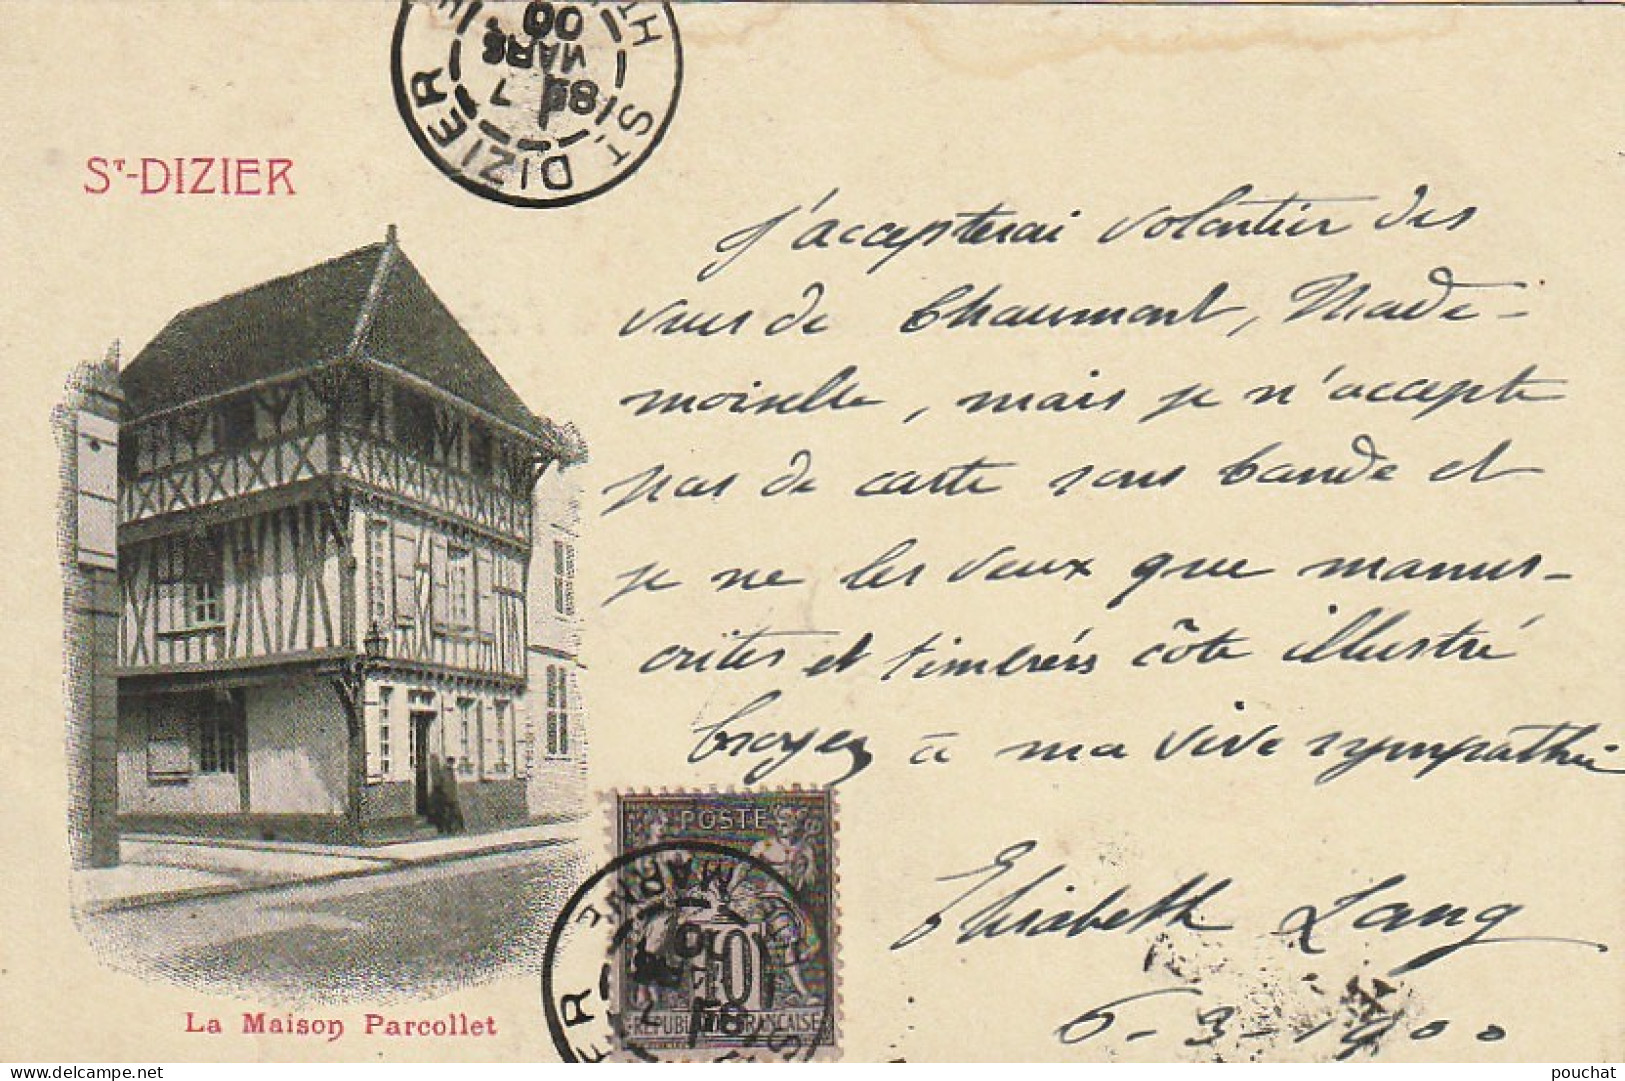 ST-DIZIER
ST DIZIER
7
MARS
00
J'accepterai volontier des
vues de Chaumont, Made-
moiselle, mais je n'accepte
pas de carte sous bande et
je ne les veux que manus-
crites et timbrées côté illustré
Croyez à ma vive sympathie
Elisabeth Lang
6-3-1900
POSTE
10
REPUBLIQUE FRANÇAISE
MARNE
La Maison Parcollet
pouchat